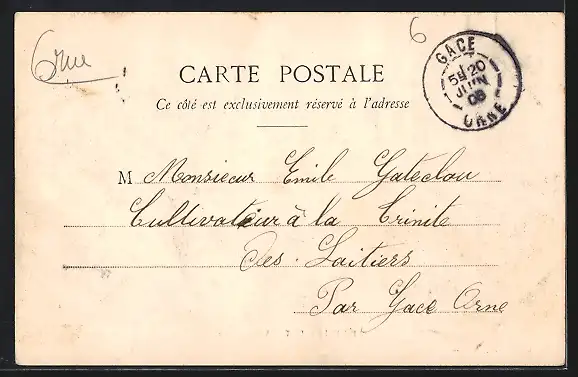 Orne
6
GACE
5E 20
JUIN
06
ORNE
CARTE POSTALE
Ce côté est exclusivement réservé à l'adresse
M Monsieur Emile Gateclou
Cultivateur à la Trinite
des Laitiers
Par Gace Orne